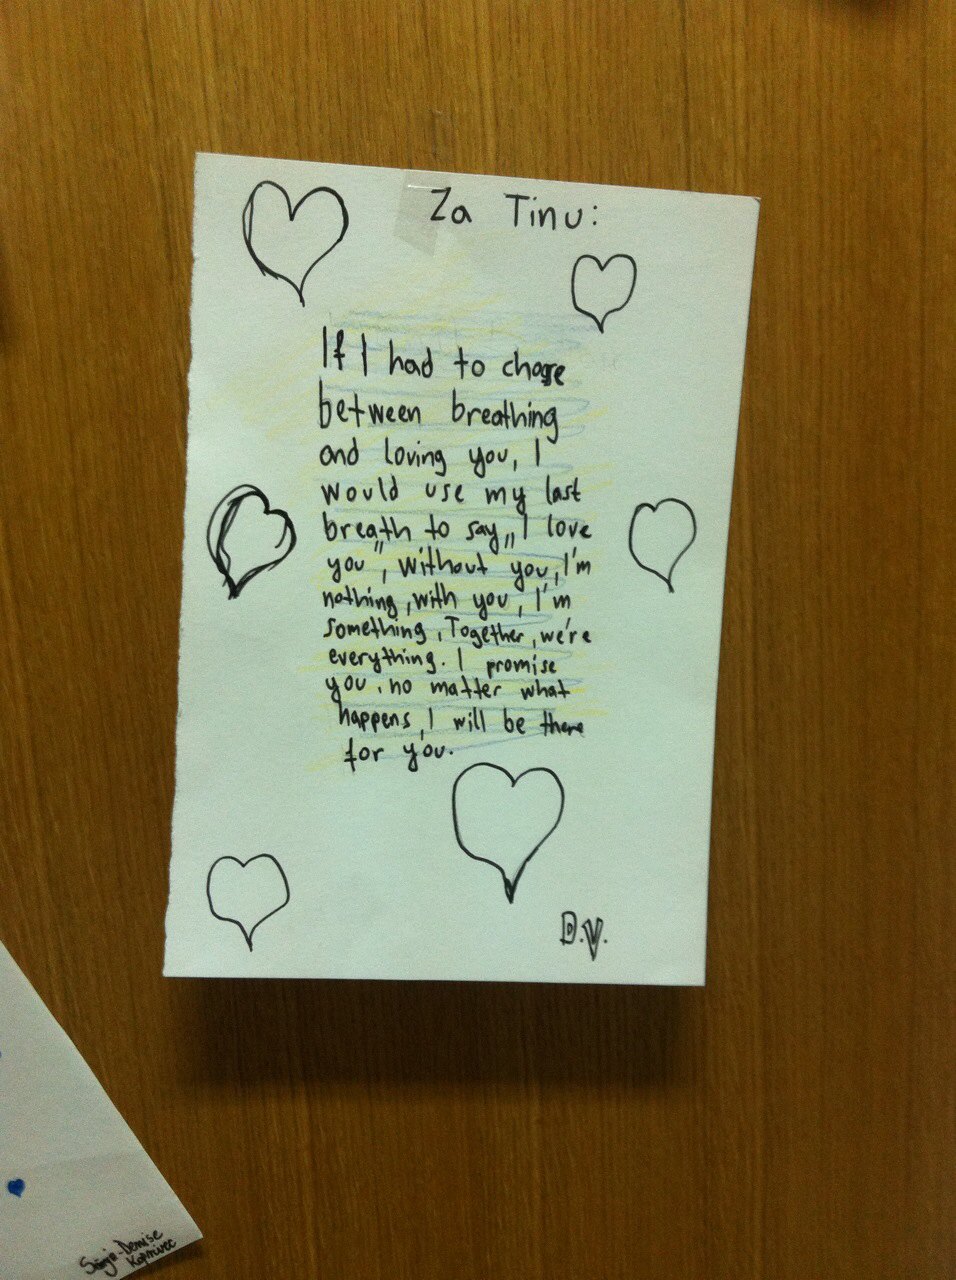 Za Tinu:
If I had to chose
between breathing
and loving you, I
would use my last
breath to say „I love
you", Without you, I'm
nothing, with you, I'm
something, Together, we're
everything. I promise
you, no matter what
happens, I will be there
for you.
D.V.